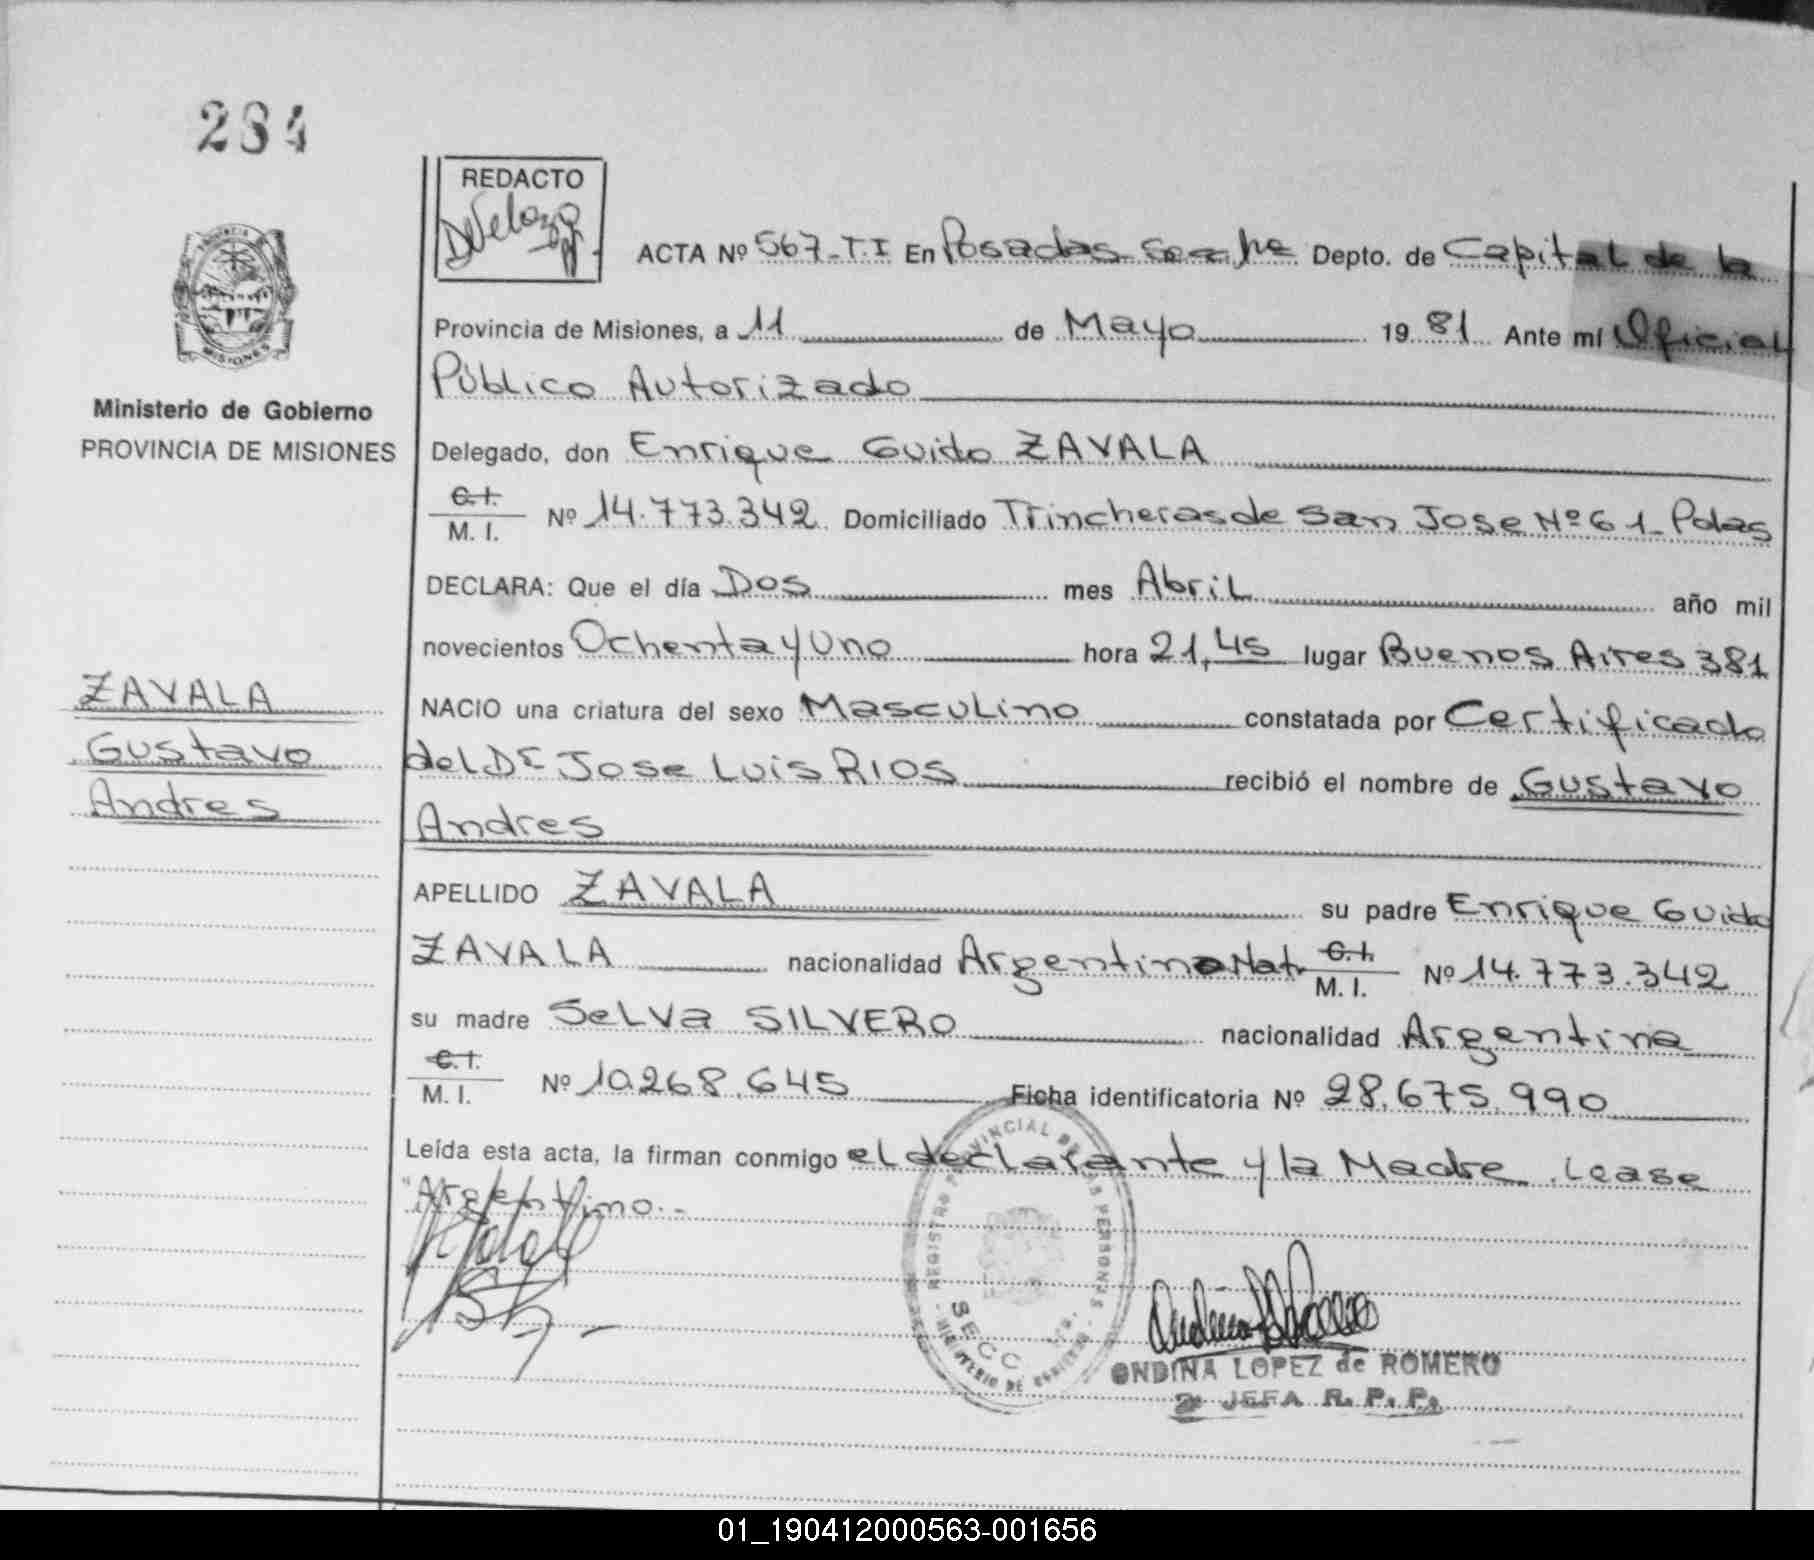 284
REDACTO
ACTA Nº 567-T.I En Posadas Depto. de Capital de la
Provincia de Misiones, a 11 de Mayo 1981 Ante mí Oficial
Público Autorizado
Ministerio de Gobierno
PROVINCIA DE MISIONES
Delegado, don Enrique Guido ZAVALA
C.I.
M. I. Nº 14.773.342 Domiciliado Trincheras de San Jose Nº 61- Pdas
DECLARA: Que el día Dos mes Abril año mil
novecientos Ochenta y Uno hora 21,45 lugar Buenos Aires 381
ZAVALA
Gustavo
Andres
NACIO una criatura del sexo Masculino constatada por Certificado
del Dr Jose Luis RIOS recibió el nombre de Gustavo
Andres
APELLIDO ZAVALA su padre Enrique Guido
ZAVALA nacionalidad Argentina Nat. C.I. M. I. Nº 14.773.342
su madre Selva SILVERO nacionalidad Argentina
C.I.
M. I. Nº 10.268.645 Ficha identificatoria Nº 28.675.990
Leída esta acta, la firman conmigo el declarante y la Madre. Lease
"Argentino.-
REGISTRO PROVINCIAL DE LAS PERSONAS
SECC
MINISTERIO DE GOBIERNO
MISIONES
ONDINA LOPEZ de ROMERO
2ª JEFA R. P. P.
01_190412000563-001656